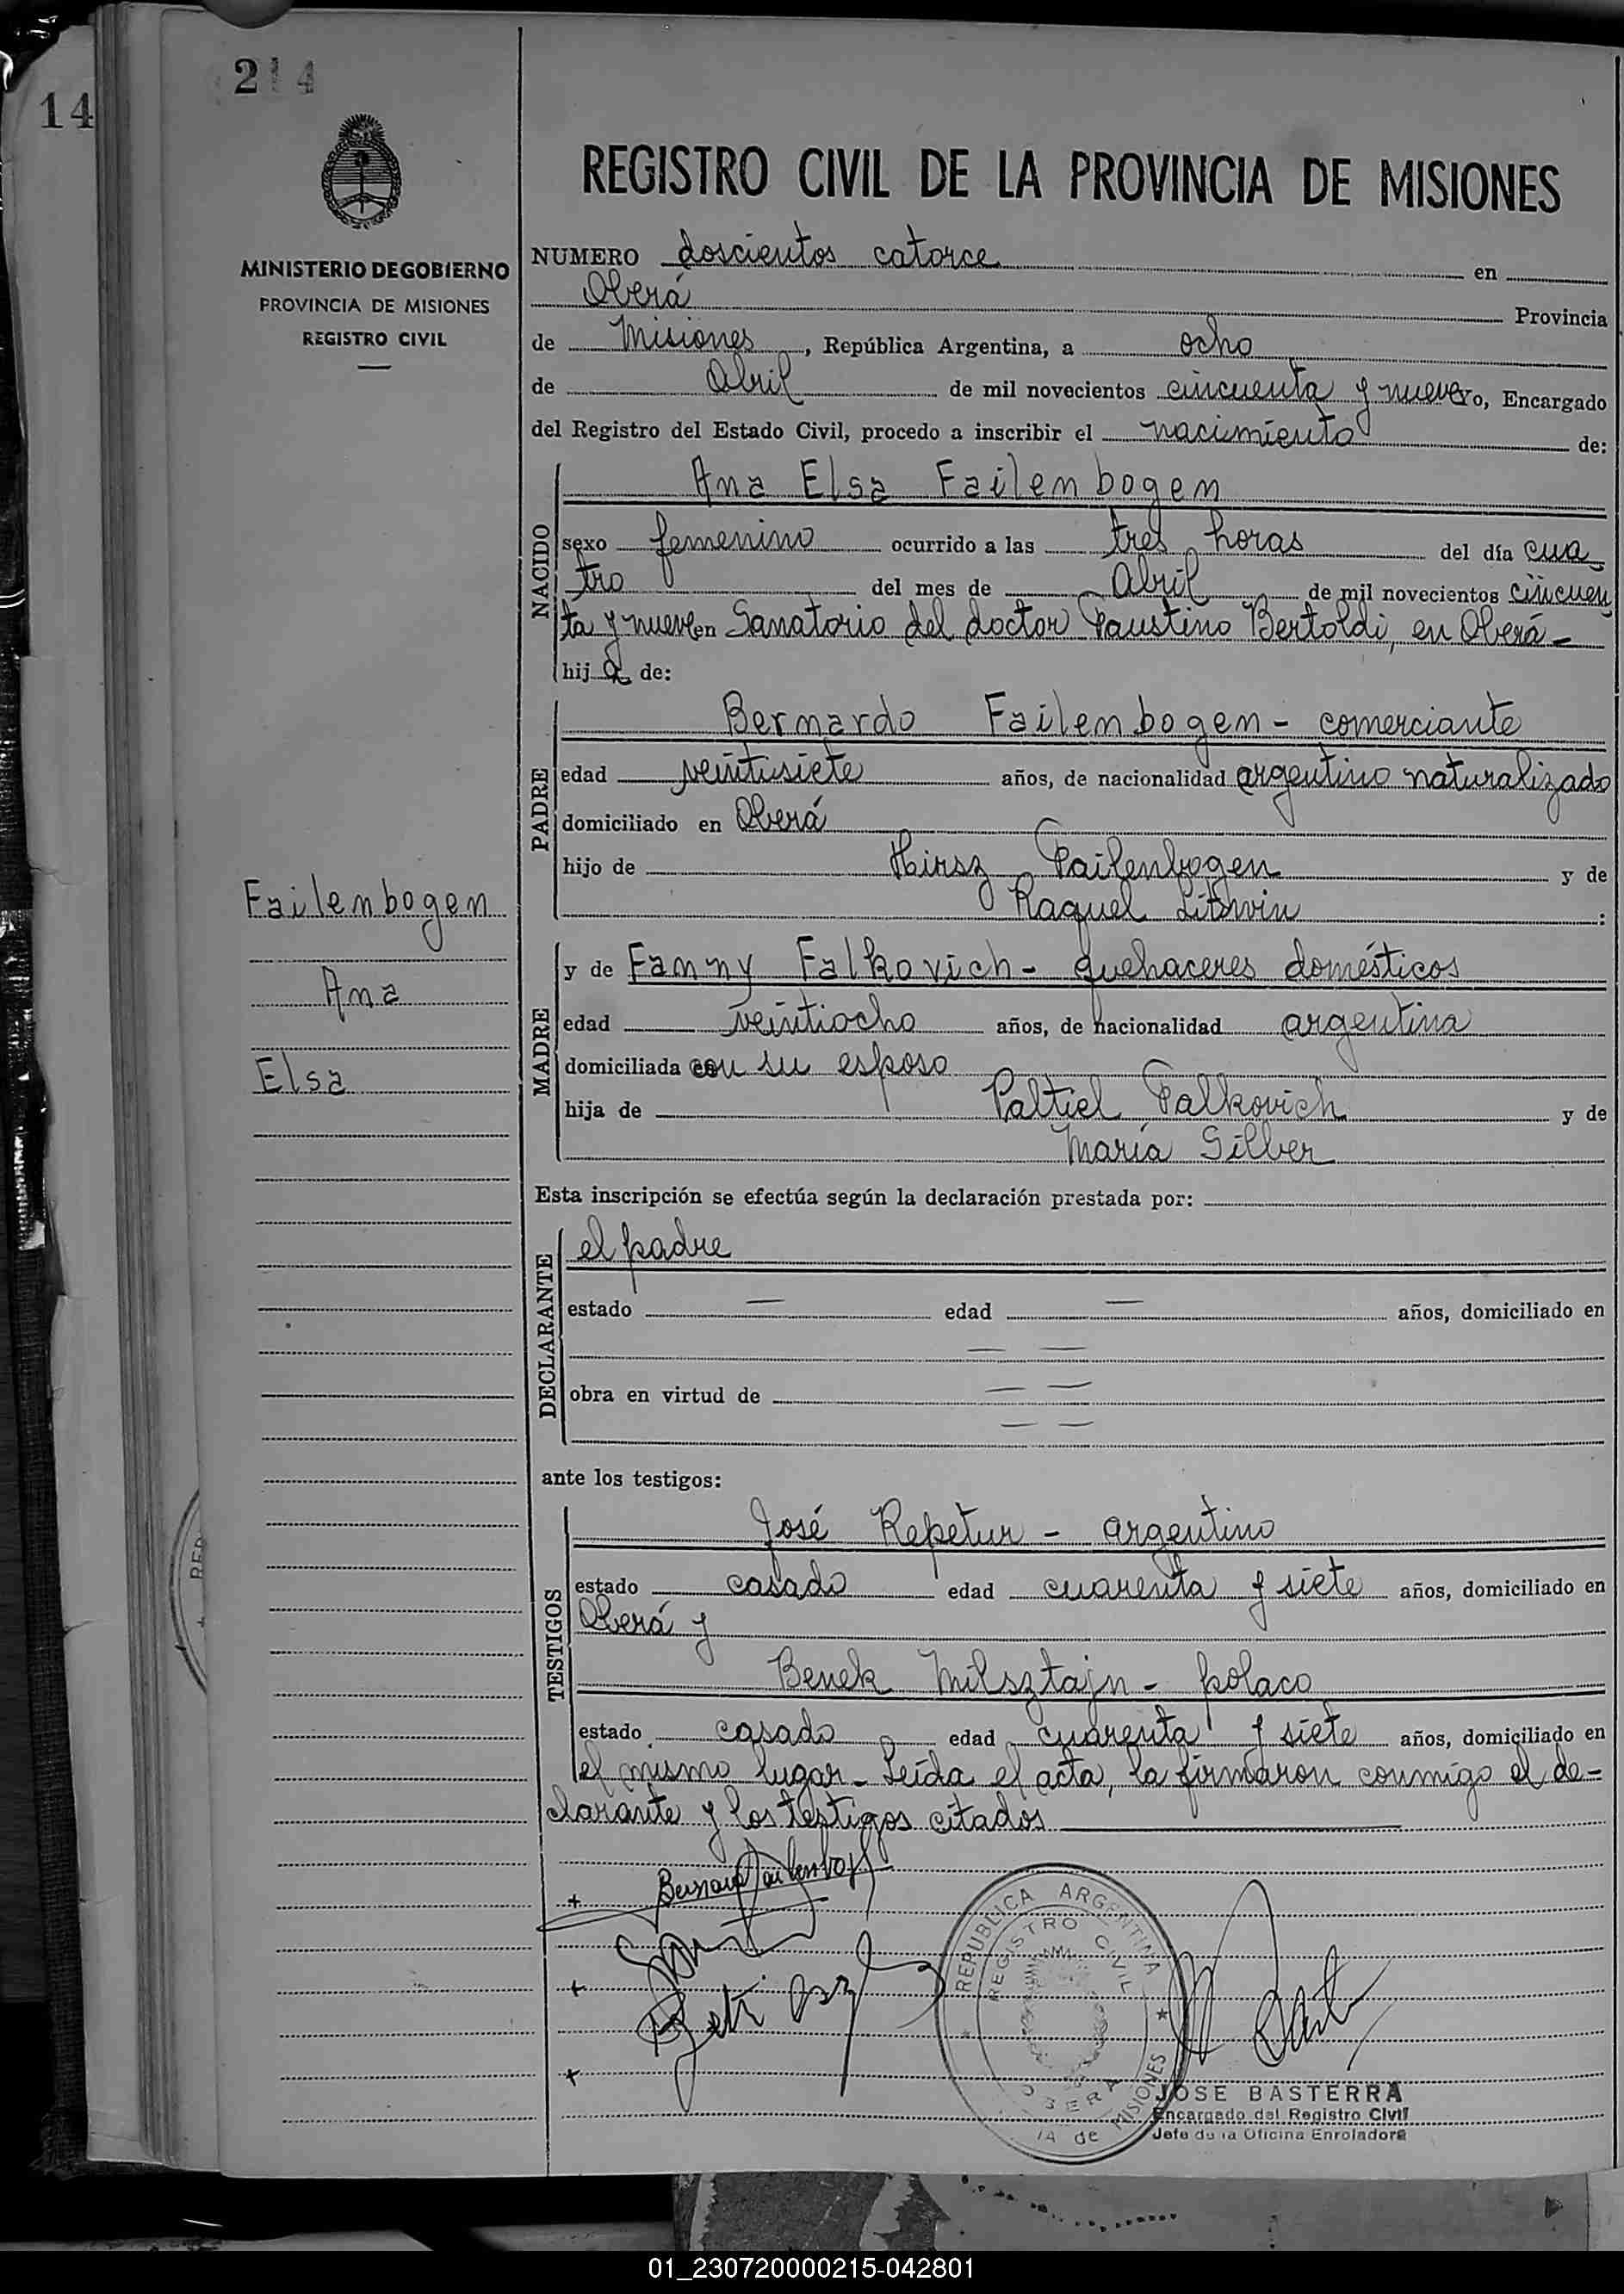 14
214
MINISTERIO DE GOBIERNO
PROVINCIA DE MISIONES
REGISTRO CIVIL
Failenbogen
Ana
Elsa
REGISTRO CIVIL DE LA PROVINCIA DE MISIONES
NUMERO doscientos catorce en
Oberá Provincia
de Misiones, República Argentina, a ocho
de Abril de mil novecientos cincuenta y nueve, Encargado
del Registro del Estado Civil, procedo a inscribir el nacimiento de:
NACIDO
Ana Elsa Failenbogen
sexo femenino ocurrido a las tres horas del día cua
tro del mes de Abril de mil novecientos cincuen
ta y nueve en Sanatorio del doctor Faustino Bertoldi, en Oberá-
hija de:
PADRE
Bernardo Failenbogen - comerciante
edad veintisiete años, de nacionalidad argentino naturalizado
domiciliado en Oberá
hijo de Hirsz Failenbogen y de
Raquel Litwin :
MADRE
y de Fanny Falkovich - quehaceres domésticos
edad veintiocho años, de nacionalidad argentina
domiciliada con su esposo
hija de Paltiel Falkovich y de
María Silber
Esta inscripción se efectúa según la declaración prestada por:
DECLARANTE
el padre
estado — edad — años, domiciliado en
— —
obra en virtud de — —
— —
ante los testigos:
TESTIGOS
José Repetur - argentino
estado casado edad cuarenta y siete años, domiciliado en
Oberá y
Benek Milsztajn - polaco
estado casado edad cuarenta y siete años, domiciliado en
el mismo lugar - Leída el acta, la firmaron conmigo el de-
clarante y los testigos citados
REPUBLICA ARGENTINA
REGISTRO CIVIL
OBERA
IA de MISIONES
JOSE BASTERRA
Encargado del Registro Civil
Jefe de la Oficina Enroladora
01_230720000215-042801